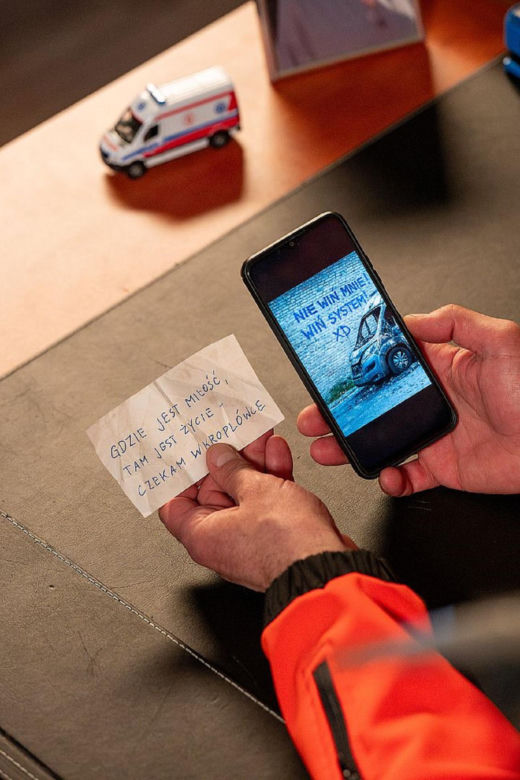 GDZIE JEST MIŁOŚĆ,
TAM JEST ŻYCIE,
CZEKAM W KROPLÓWCE
NIE WIŃ MNIE!
WIŃ SYSTEM!
XD